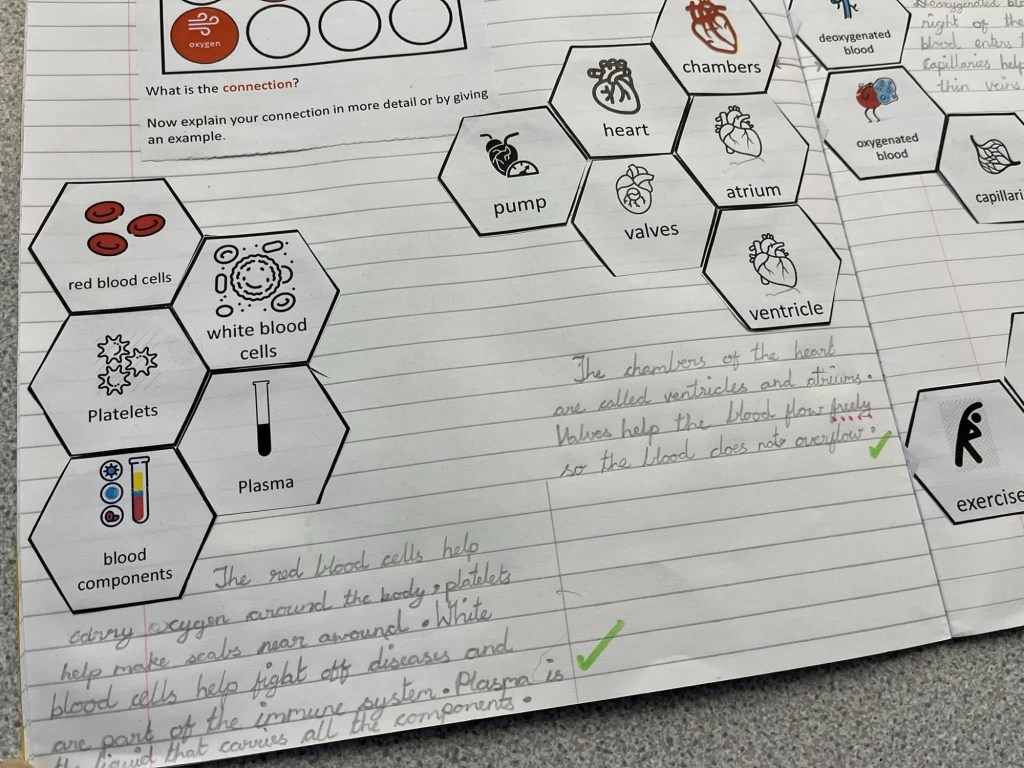 oxygen
What is the connection?
Now explain your connection in more detail or by giving
an example.
chambers
heart
pump
atrium
valves
ventricle
deoxygenated
blood
oxygenated
blood
capillari
right of the
blood enter
Capillaries help
thin veins
red blood cells
white blood
cells
Platelets
Plasma
blood
components
The chambers of the heart
are called ventricles and atriums.
Valves help the blood flow freely
so the blood does not overflow.
exercise
The red blood cells help
carry oxygen around the body, platelets
help make scabs near awound. White
blood cells help fight off diseases and
are part of the immune system. Plasma is
the liquid that carries all the components.